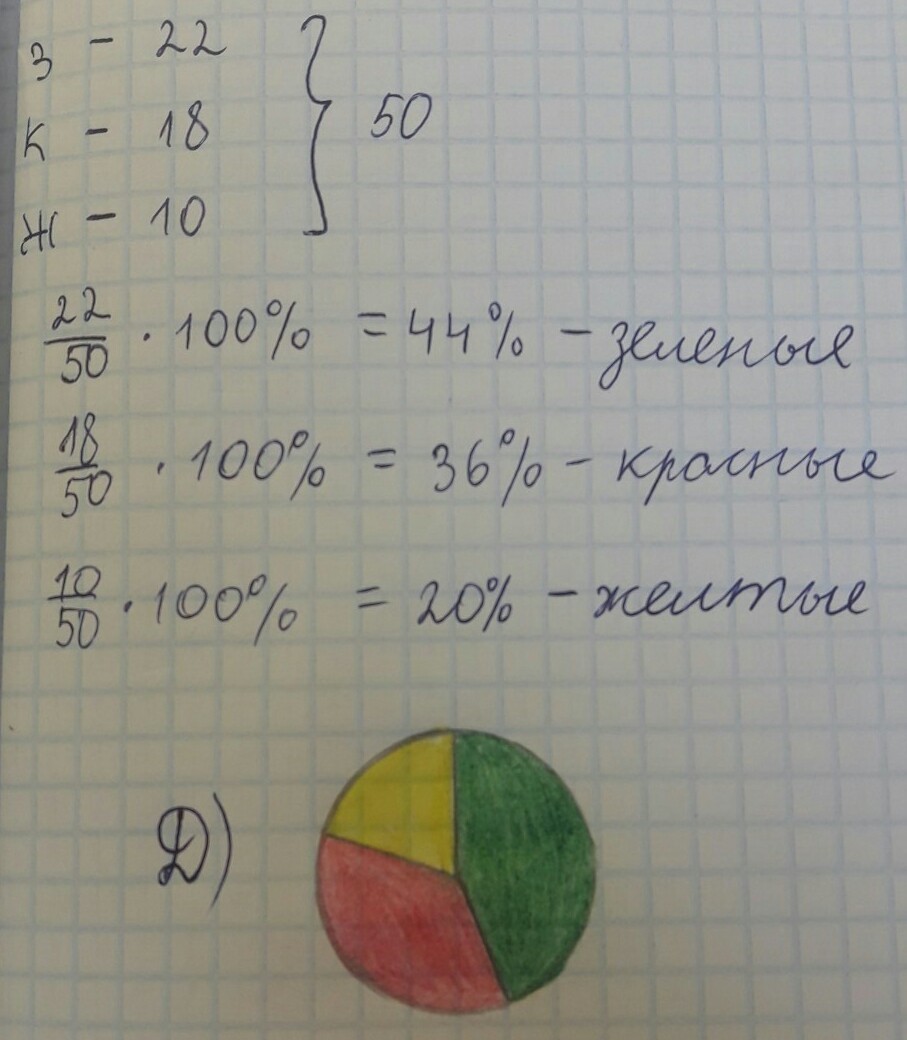 З - 22
К - 18
Ж - 10
} 50
22/50 · 100% = 44% - зеленые
18/50 · 100% = 36% - красные
10/50 · 100% = 20% - желтые
Д)